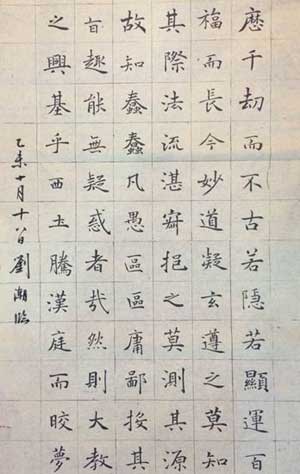 歷千劫而不古若隱若顯運百
福而長今妙道凝玄遵之莫知
其際法流湛寂挹之莫測其源
故知蠢蠢凡愚區區庸鄙投其
旨趣能無疑惑者哉然則大教
之興基乎西土騰漢庭而皎夢
乙未十月十八日劉潮臨